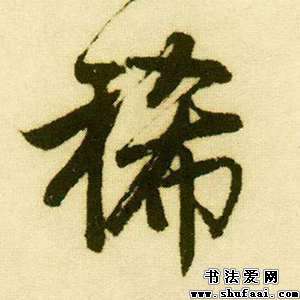 稀
书法爱网
www.shufaai.com